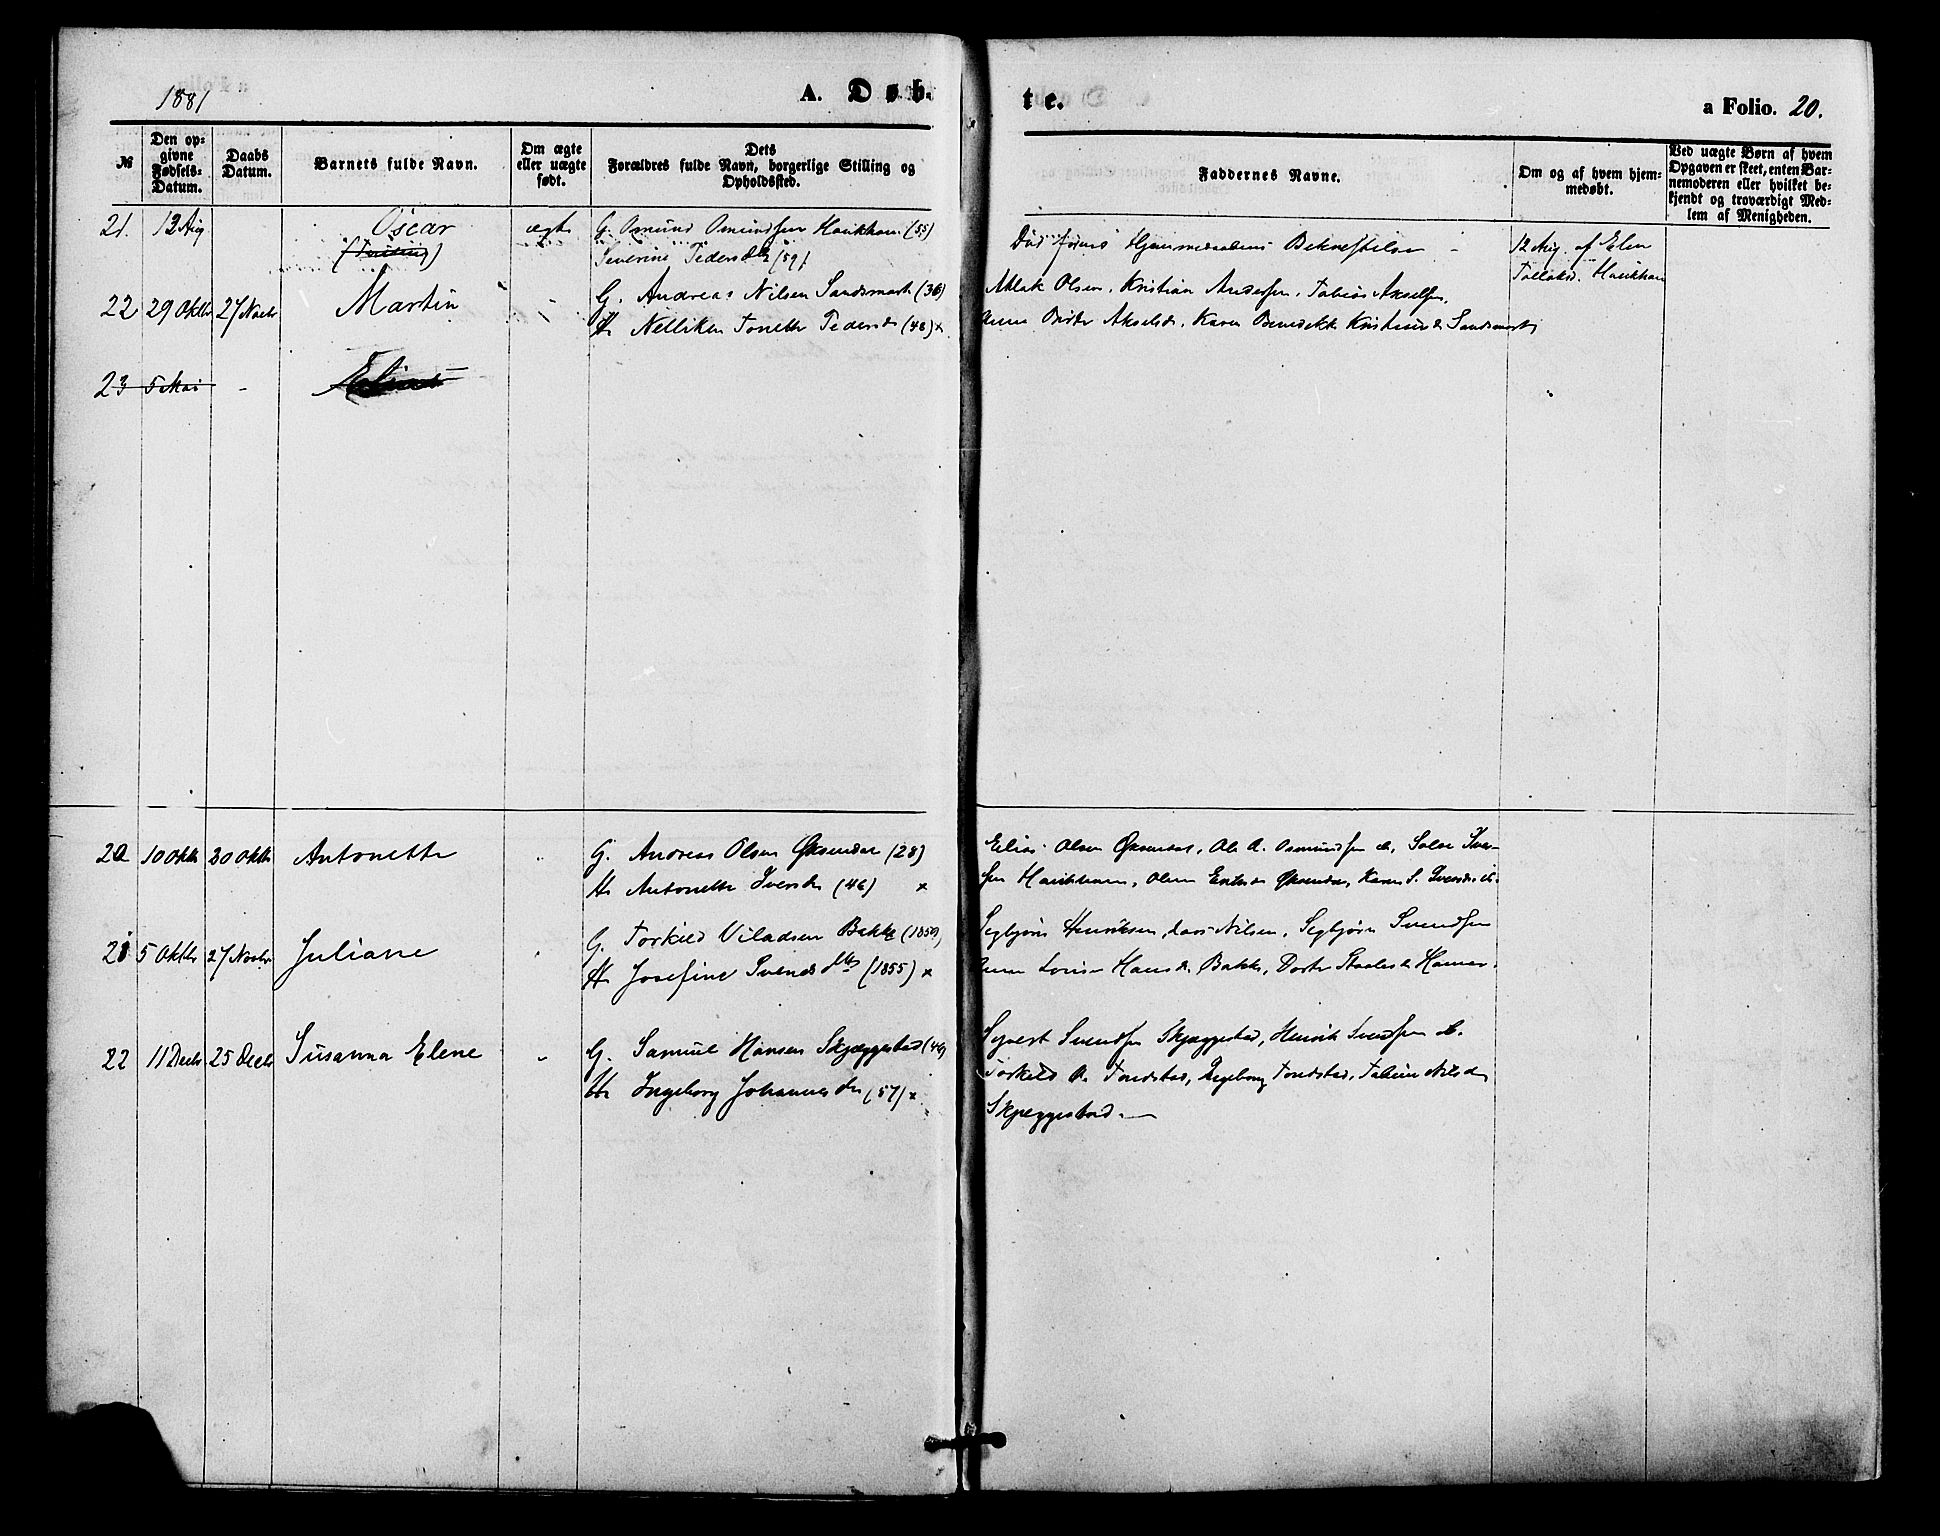 1881
A. Døb-
te.
a Folio. 20.
№
Den op-
givne
Fødsels-
Datum.
Daabs
Datum.
Barnets fulde Navn.
Om ægte
eller uægte
født.
Dets
Forældres fulde Navn, borgerlige Stilling og
Opholdssted.
Faddernes Navne.
Om og af hvem hjem-
medøbt.
Ved uægte Børn af hvem
Opgaven er skeet, enten Bar-
nemoderen eller hvilket be-
kjendt og troværdigt Med-
lem af Menigheden.
21. 12 Aug Oscar ægte G. Osmund Osmundsen Haukhom (55)
Severine Pedersdtr (59)
Død førend Hjemmedaabens Bekræftelse -
12 Aug. af Elen
Tollaksd. Haukhom
22 29 Oktbr 27 Novbr Martin - G. Andreas Nilsen Sandsmark (36)
H. Nelliken Tonette Pedersd (48) x
Atlak Olsen, Kristian Andersen, Tobias Akselsen,
Anne Birte Akselsd, Karen Benedikte Kristensd Sandsmark
23 5 Mai -
20 10 Oktb 30 Oktb Antonette G. Andreas Olsen Øksendal (28)
H. Antonette Iversdr (46) x
Elias Olsen Øksendal, Ole A. Osmundsen ib, Salve Iver-
sen Haukhom, Øksendal, Karen S. Iversdr ib.
21 5 Oktbr 27 Novbr Juliane G. Torkild Viladsen Bakke (1850)
H. Josefine Svendsdtr (1855) x
Segbjørn Henriksen, Lars Nilsen, Segbjørn Svendsen
Anna Louise Hansd. Bakke, Dorte Staalesd Hamar.
22 11 Decbr 25 Decbr Susanna Elene - G. Samuel Hansen Skjeggestad (46)
H. Ingeborg Johannesdr (57) x
Syvert Svendsen Skjeggestad, Henrik Svendsen ib.
Torkild A. Tondstad, Ingeborg Tondstad, Tobine Nilsd
Skjeggestad.